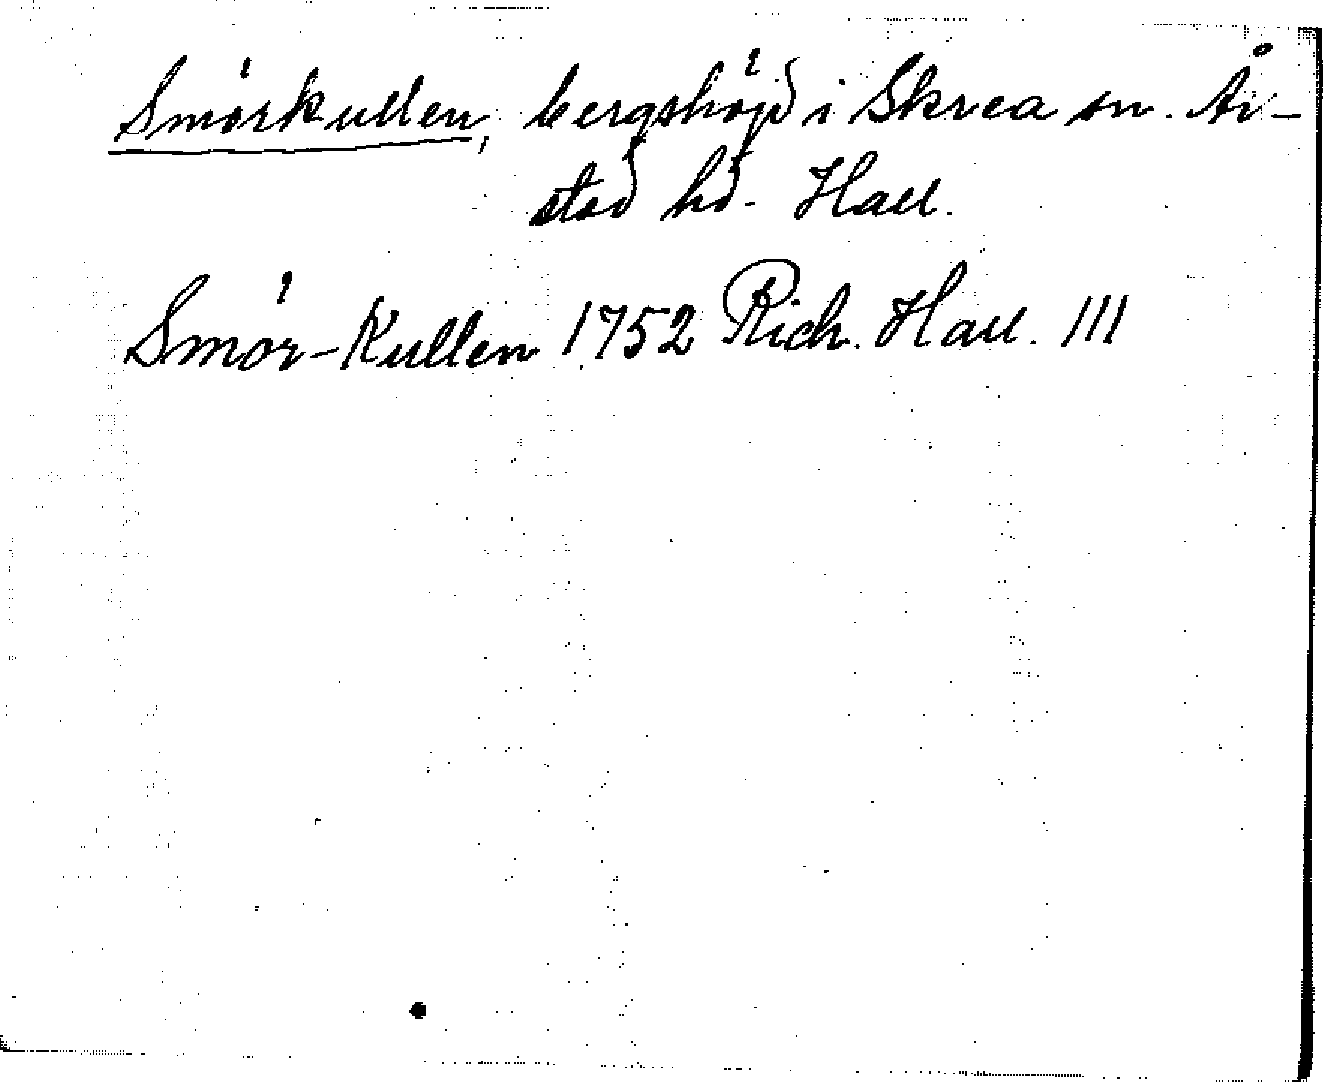 Smörkullen, bergshöjd i Skrea sn. År-
stad hd. Hall.
Smör-Kullen 1752 Rich. Hall. III